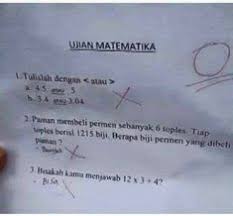 UJIAN MATEMATIKA
1. Tulislah dengan < atau >
a. 4.5 atau 5
b. 3.4 atau 3.04
2. Paman membeli permen sebanyak 6 toples. Tiap
toples berisi 1215 biji. Berapa biji permen yang dibeli
paman ?
- Banyak
3. Bisakah kamu menjawab 12 x 3 + 4?
- Bisa